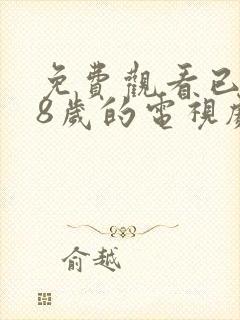 免費觀看已
8歲的電視
俞越